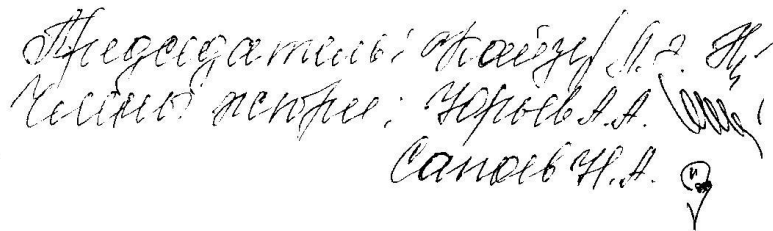 Председатель: Кайзер А. А.
Члены жюри: Юрьев А. А.
Сапаев Н. А.